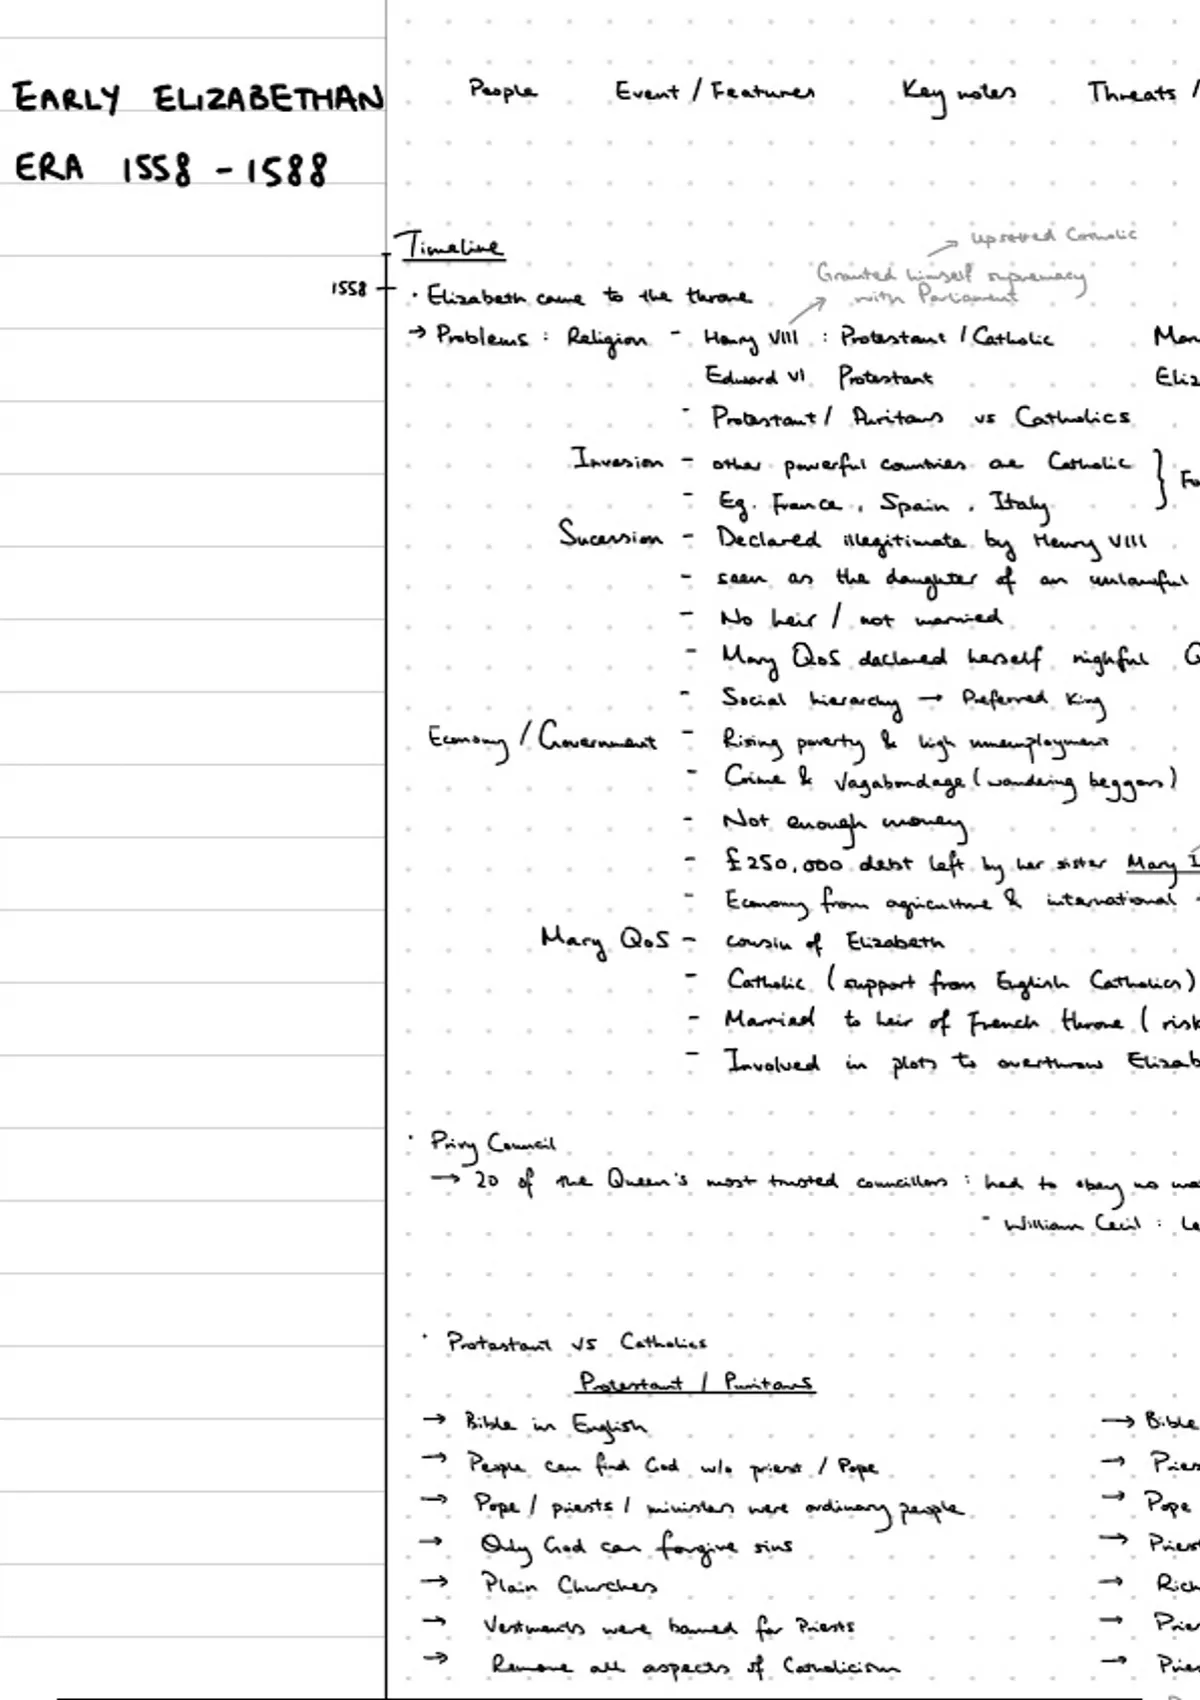 EARLY ELIZABETHAN
ERA 1558 - 1588
People Event / Features Key notes Threats /
Timeline
upsetted Catholic
Granted himself supremacy
with Parliament
1558
· Elizabeth came to the throne
→ Problems : Religion - Henry VIII : Protestant / Catholic
Edward VI Protestant
- Protestant / Puritans vs Catholics
Invasion - other powerful countries are Catholic
- Eg. France, Spain, Italy
Sucession - Declared illegitimate by Henry VIII
- seen as the daughter of an unlawful
- No heir / not married
- Mary QoS declared herself rightful Q
- Social hierarchy → Preferred King
Economy / Government - Rising poverty & high unemployment
- Crime & Vagabondage (wandering beggars)
- Not enough money
- £250,000 debt left by her sister Mary I
- Economy from agriculture & international
Mary QoS - cousin of Elizabeth
- Catholic (support from English Catholics)
- Married to heir of French throne ( risk
- Involved in plots to overthrow Elizab
· Privy Council
→ 20 of the Queen's most trusted councillors : had to obey no ma
- William Cecil : Le
· Protastant vs Catholics
Protestant / Puritans
→ Bible in English
→ People can find God w/o priest / Pope
→ Pope / priests / ministers were ordinary people
→ Only God can forgive sins
→ Plain Churches
→ Vestments were banned for Priests
→ Remove all aspects of Catholicism
→ Bible
→ Pries
→ Pope
→ Priest
→ Rich
→ Prie
→ Prie